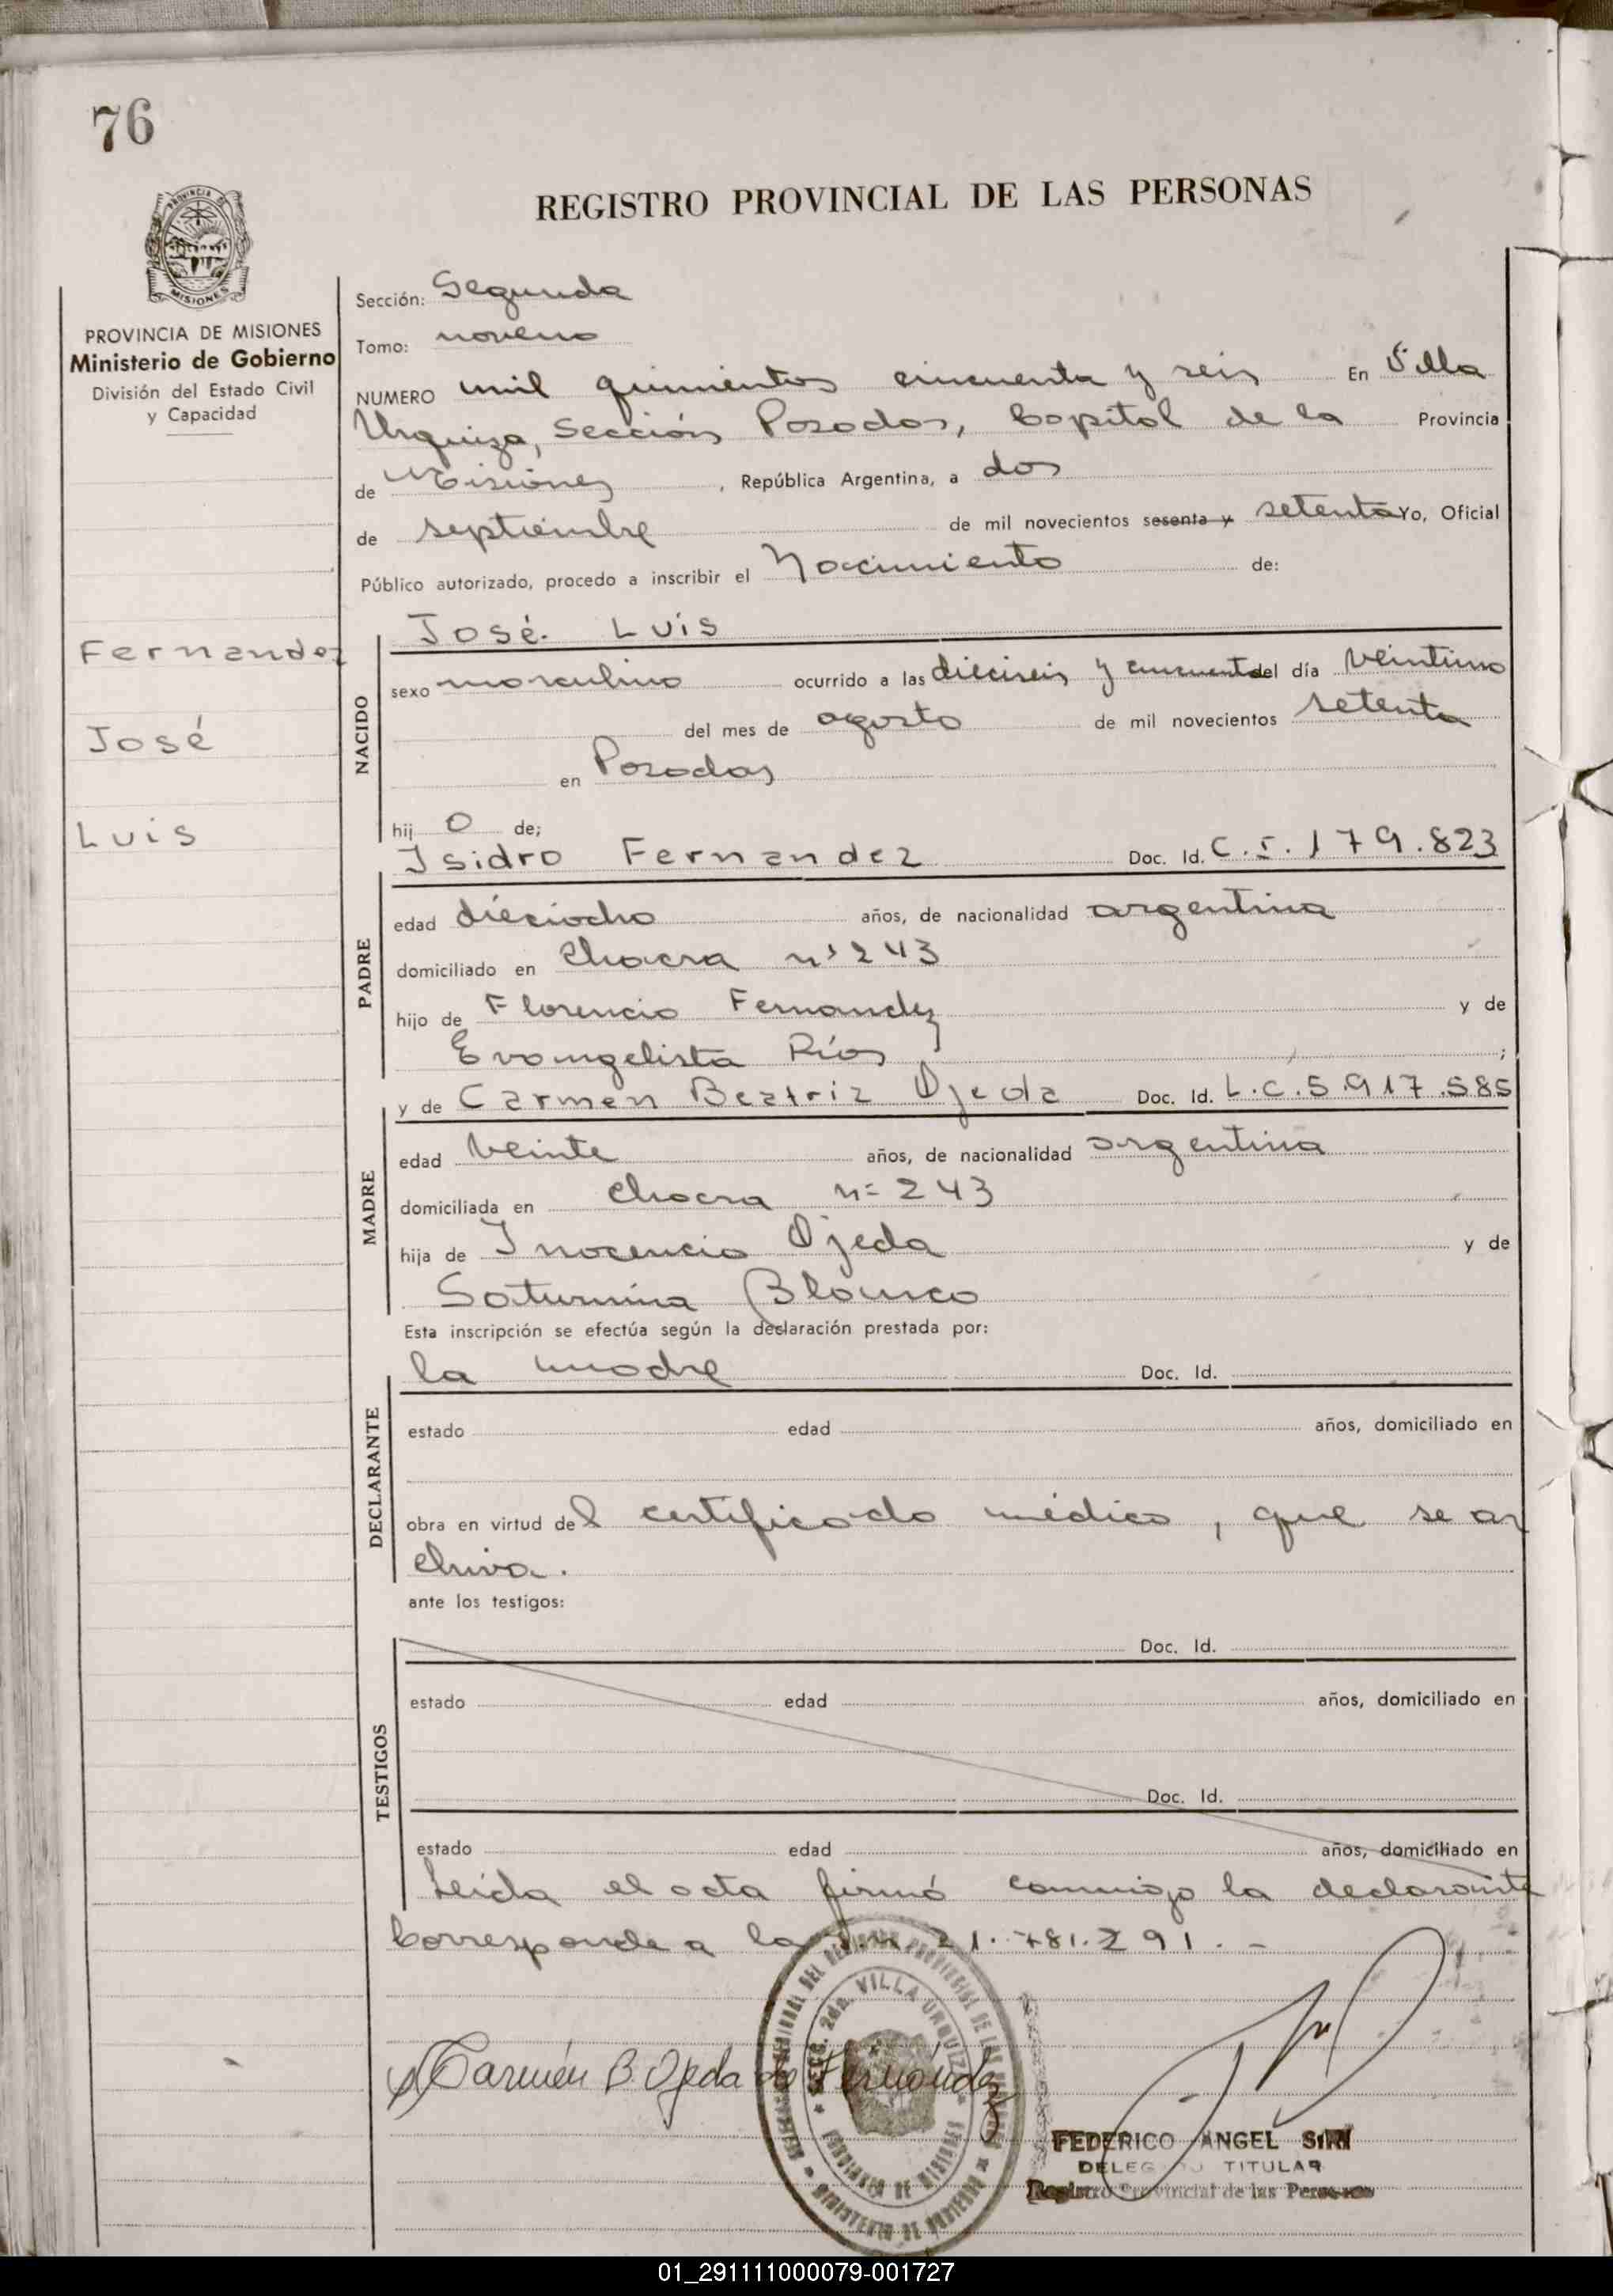 76
PROVINCIA DE
MISIONES
REGISTRO PROVINCIAL DE LAS PERSONAS
PROVINCIA DE MISIONES
Ministerio de Gobierno
División del Estado Civil
y Capacidad
Fernandez
José
Luis
Sección: Segunda
Tomo: noveno
NUMERO mil quinientos cincuenta y seis En Villa
Urquiza, Sección Posadas, Capital de la Provincia
de Misiones, República Argentina, a dos
de septiembre de mil novecientos sesenta y setenta Yo, Oficial
Público autorizado, procedo a inscribir el Nacimiento de:
José Luis
NACIDO
sexo masculino ocurrido a las dieciseis y cincuenta del día veintiuno
del mes de agosto de mil novecientos setenta
en Posadas
hij o de;
Isidro Fernandez Doc. Id. C.I. 179.823
PADRE
edad dieciocho años, de nacionalidad argentina
domiciliado en Chacra nº 243
hijo de Florencio Fernandez y de
Evangelista Ríos ;
y de Carmen Beatriz Ojeda Doc. Id. L.C. 5.917.585
MADRE
edad veinte años, de nacionalidad argentina
domiciliada en Chacra nº 243
hija de Inocencio Ojeda y de
Saturnina Blanco
Esta inscripción se efectúa según la declaración prestada por:
la madre Doc. Id.
DECLARANTE
estado edad años, domiciliado en
obra en virtud del certificado médico, que se ar
chiva.
ante los testigos:
Doc. Id.
TESTIGOS
estado edad años, domiciliado en
Doc. Id.
estado edad años, domiciliado en
Leída el acta firmó conmigo la declarante
Corresponde a la 21.781.291.-
Carmén B. Ojeda de Fernández
SECC. 2da. VILLA URQUIZA
PROVINCIA DE MISIONES
MINISTERIO DE GOBIERNO
FEDERICO ANGEL SIRI
TITULAR
Registro Provincial de las Personas
01_291111000079-001727